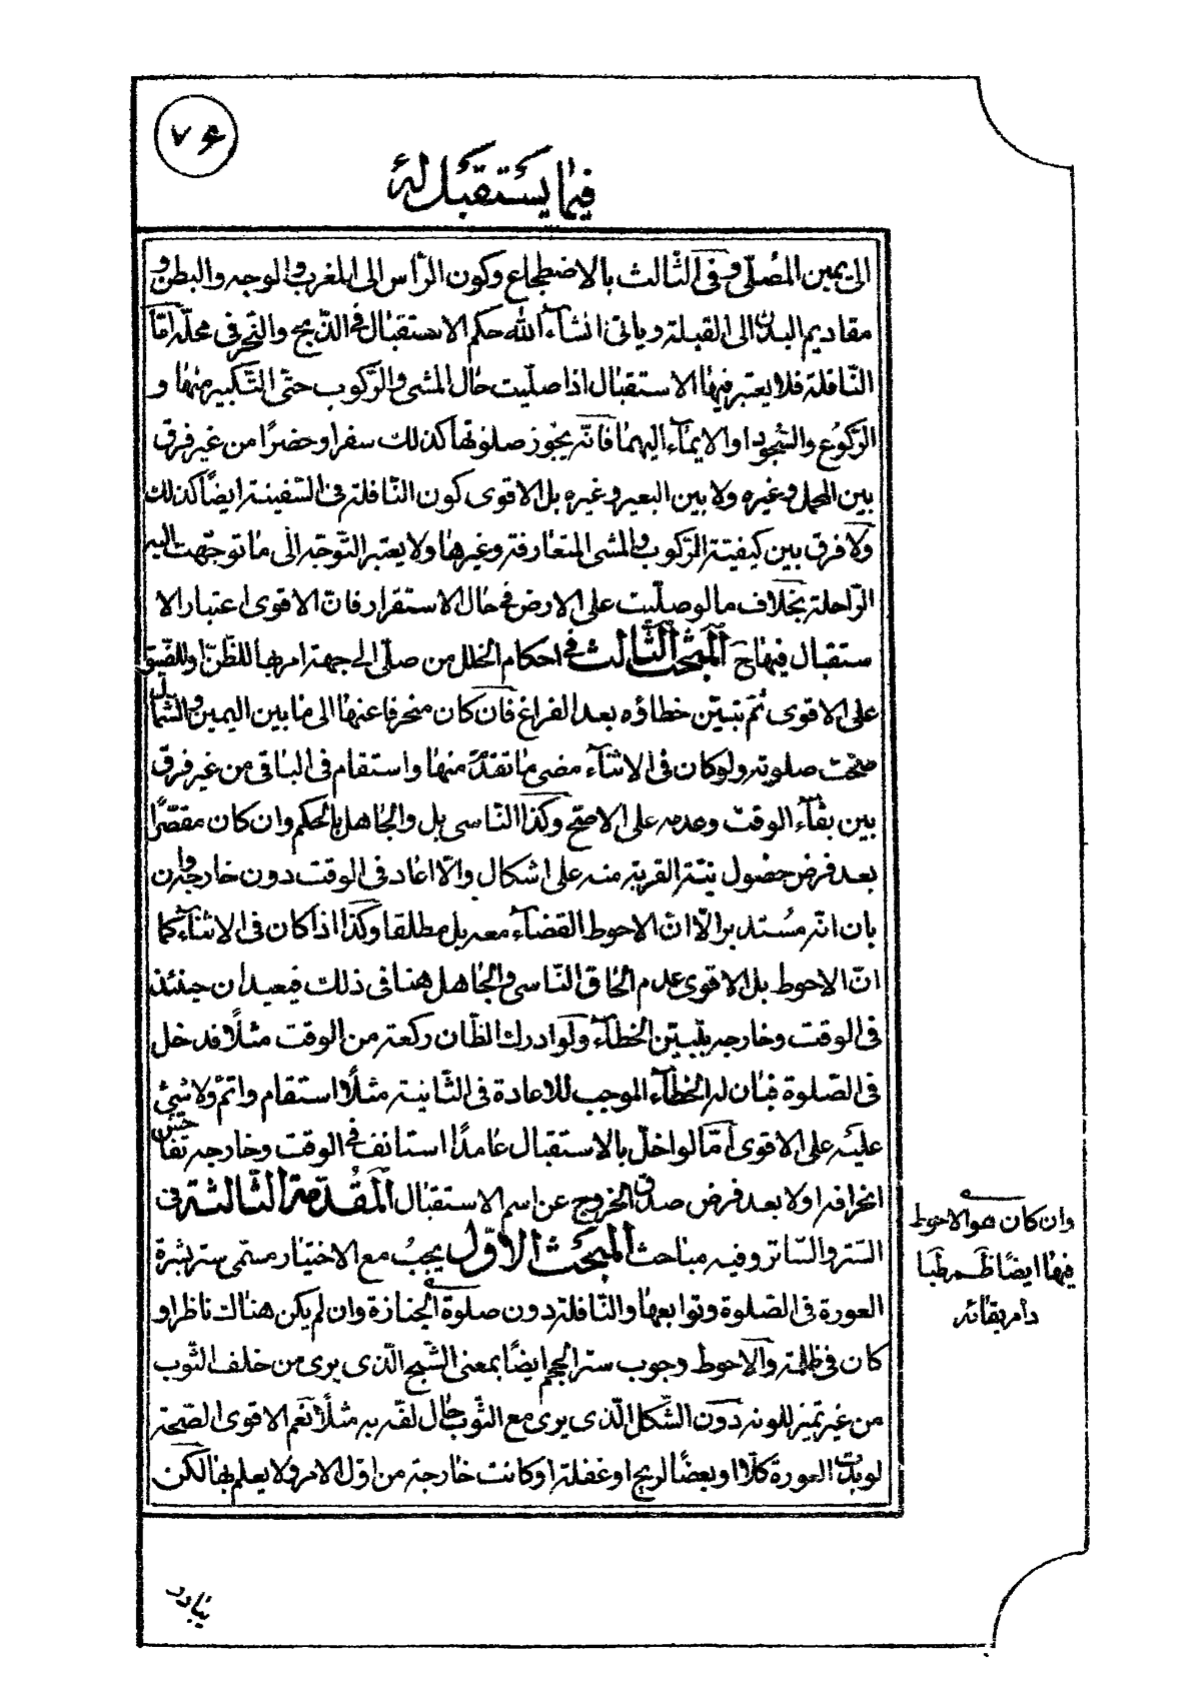 ٧۶
فيما يستقبل له
الى يمين المصلّى وفى الثّالث بالاضطجاع وكون الرّأس الى المغرب والوجه والبطن و
مقاديم البدن الى القبلة وياتى انشاء الله حكم الاستقبال فى الذّبح والنّحر فى محلّه امّا
النّافلة فلا يعتبر فيها الاستقبال اذا صلّيت حال المشى والرّكوب حتّى التّكبير منها و
الرّكوع والسّجود او الايماء اليهما فانّه يجوز صلوتها كذلك سفرا وحضرًا من غير فرق
بين المحمل وغيره ولا بين البعير وغيره بل الاقوى كون النّافلة فى السّفينة ايضًا كذلك
ولا فرق بين كيفيّة الرّكوب والمشى المتعارفة وغيرها ولا يعتبر التّوجّه الى ما توجّهت اليه
الرّاحلة بخلاف ما لو صلّيت على الارض فى حال الاستقرار فانّ الاقوى اعتبار الا
ستقبال فيها ح المبحث الثّالث فى احكام الخلل من صلّى الى جهة امر بها للظّنّ او للضّيق
على الاقوى ثمّ تبيّن خطاؤه بعد الفراغ فان كان منحرفا عنها الى ما بين اليمين والشّمال
صحّت صلوته ولو كان فى الاثناء مضى ما تقدّم منها واستقام فى الباقى من غير فرق
بين بقاء الوقت وعدمه على الاصحّ وكذا النّاسى بل والجاهل بالحكم وان كان مقصّرًا
بعد فرض حصول نيّة القربة منه على اشكال والّا اعاد فى الوقت دون خارجه وان
بان انّه مستدبر الّا انّ الاحوط القضاء معه بل مطلقا وكذا اذا كان فى الاثناء كما
انّ الاحوط بل الاقوى عدم الحاق النّاسى والجاهل هنا فى ذلك فيعيدان حينئذ
فى الوقت وخارجه بتبيّن الخطاء ولو ادرك الظّان ركعة من الوقت مثلًا فدخل
فى الصّلوة فبان له الخطاء الموجب للاعادة فى الثّانية مثلًا استقام واتمّ ولا شئ
عليه على الاقوى امّا لو اخلّ بالاستقبال عامدًا استانف فى الوقت وخارجه تفاحش
انحرافه اولا بعد فرض صدق الخروج عن اسم الاستقبال المقدّمة الثّالثة فى
السّتر والسّاتر وفيه مباحث المبحث الاوّل يجب مع الاختيار مسمّى ستر بشرة
العورة فى الصّلوة وتوابعها والنّافلة دون صلوة الجنازة وان لم يكن هناك ناظر او
كان فى ظلمة والاحوط وجوب ستر الحجم ايضًا بمعنى الشّبح الّذى يرى من خلف الثّوب
من غير تميز للونه دون الشّكل الّذى يرى مع الثّوب حال لفّه به مثلًا نعم الاقوى الصّحة
لو بدت العورة كلّا او بعضًا لريح او غفلة او كانت خارجة من اوّل الامر ولا يعلم بها لكن
وان كان هو الاحوط
فيها ايضًا ظم طبا
دام بقائه
يبادر